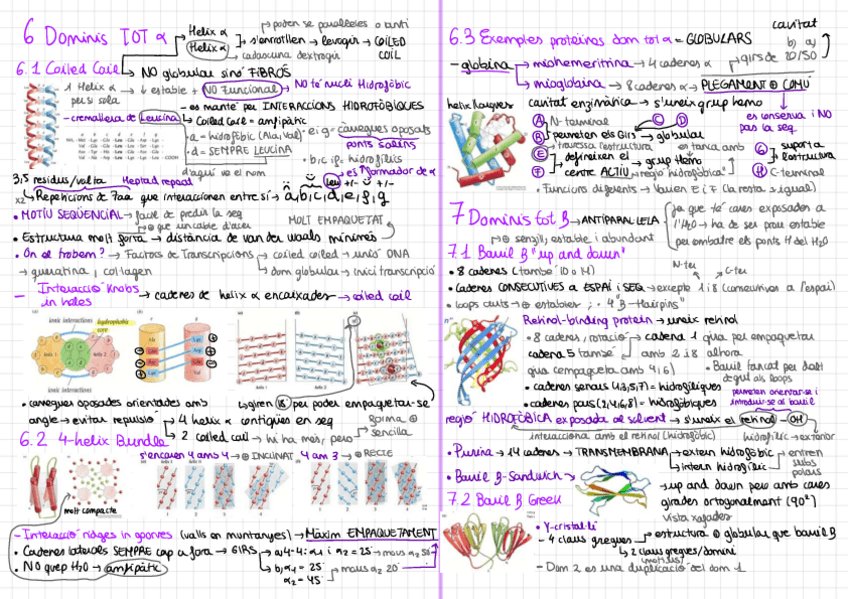 6 Dominis TOT α
Helix α
Helix α
poden ser paral·leles o anti
s'enrotllen → levogir → COILED COIL
cadascuna dextrogir
6.1 Coiled Coil
NO globular sinó FIBRÓS
1 Helix α per si sola → ↓ estable + NO Funcional → NO té nucli Hidrofòbic
es manté per INTERACCIONS HIDROFÒBIQUES
- cremallera de Leucina
Coiled Coil = amfipàtic
a = hidrofòbic (Ala, Val)
e i g = càrregues oposades
ponts salins
d = SEMPRE LEUCINA
b, c i f = hidrofílics
d'aquí ve el nom
Leu
es formador de α
3,5 residus/volta
Heptad repeat
x2
Repeticions de 7aa que interaccionen entre sí → a, b, c, d, e, f, g
• MOTIU SEQÜENCIAL → fàcil de predir la seq
que un cable d'acer
MOLT EMPAQUETAT
• Estructura molt forta → distància de van der waals mínimes
• On el trobem? → Factors de Transcripció → coiled coil → unió DNA
→ queratina, col·lagen
dom globular → inici transcripció
- Interacció Knobs in holes → cadenes de helix α encaixades → coiled coil
ionic interactions
hydrophobic core
ionic interactions
• càrregues oposades orientades amb angle → evitar repulsió
giren 18° per poder empaquetar-se
4 helix α contigües en seq
2 coiled coil → hi ha més, però
forma + sencilla
6.2 4-helix Bundle
s'encaren 4 amb 4 → INCLINAT
4 am 3 → RECTE
molt compacte
- Interacció ridges in grooves (valls en muntanyes) → Màxim EMPAQUETAMENT
• Cadenes laterals SEMPRE cap a fora → GIRS
a) 4-4: α1 i α2 = 25° → mous α2 50°
b) α1 = 25° α2 = 45°
mous α2 20°
• NO quep H2O → amfipàtic
6.3 Exemples proteïnes dom tot α = GLOBULARS
cavitat
b) a)
girs de 20/50
- globina
miohemeritrina → 4 cadenes α
mioglobina → 8 cadenes α → PLEGAMENT + COMÚ
helix llargues
cavitat enzimàtica → s'uneix grup hemo
es conserva i NO pas la seq.
A N-terminal
C D
B permeten els Girs → globular
travessa l'estructura
es tanca amb
E definieixen el grup Hemo
F centre ACTIU → regió hidrofòbica
G suporta l'estructura
H C-terminal
• Funcions diferents → Varien E i F (la resta = igual)
7 Dominis tot β → ANTIPARAL·LELA
ja que té cares exposades a l'H2O → ha de ser prou estable per combatre els ponts H del H2O
sencill, estable i abundant
7.1 Barril β "up and down"
N-ter
C-ter
• 8 cadenes (també 10 o 14)
• Cadenes CONSECUTIVES a ESPAI i SEQ → excepte 1 i 8 (consecutives a l'espai)
• loops curts → + estables ; • 4 β-Hairpins"
Retinol-binding protein → uneix retinol
• 8 cadenes, rotació
cadena 1 gira per empaquetar amb 2 i 8 alhora
cadena 5 també
(gira i empaqueta amb 4 i 6)
• Barril tancat per dalt degut als loops
• cadenes senars (1,3,5,7) = hidrofíliques
• cadenes pars (2,4,6,8) = hidrofòbiques
permeten orientar-se i introduir-se al barril
regió HIDROFÒBICA exposada al solvent → s'uneix el retinol - OH
interacciona amb el retinol (hidrofòbic)
hidrofílic → exterior
• Purina → 14 cadenes → TRANSMEMBRANA
extern hidrofòbic
intern hidrofílic
entren subs polars
• Barril β-Sandwich
up and down però amb cares girades ortogonalment (90°)
vista xafades
7.2 Barril β Greek
• γ-cristal·lí
- 4 claus gregues
estructura + globular que barril β
2 claus gregues/domini
(motius)
- Dom 2 és una duplicació del dom 1